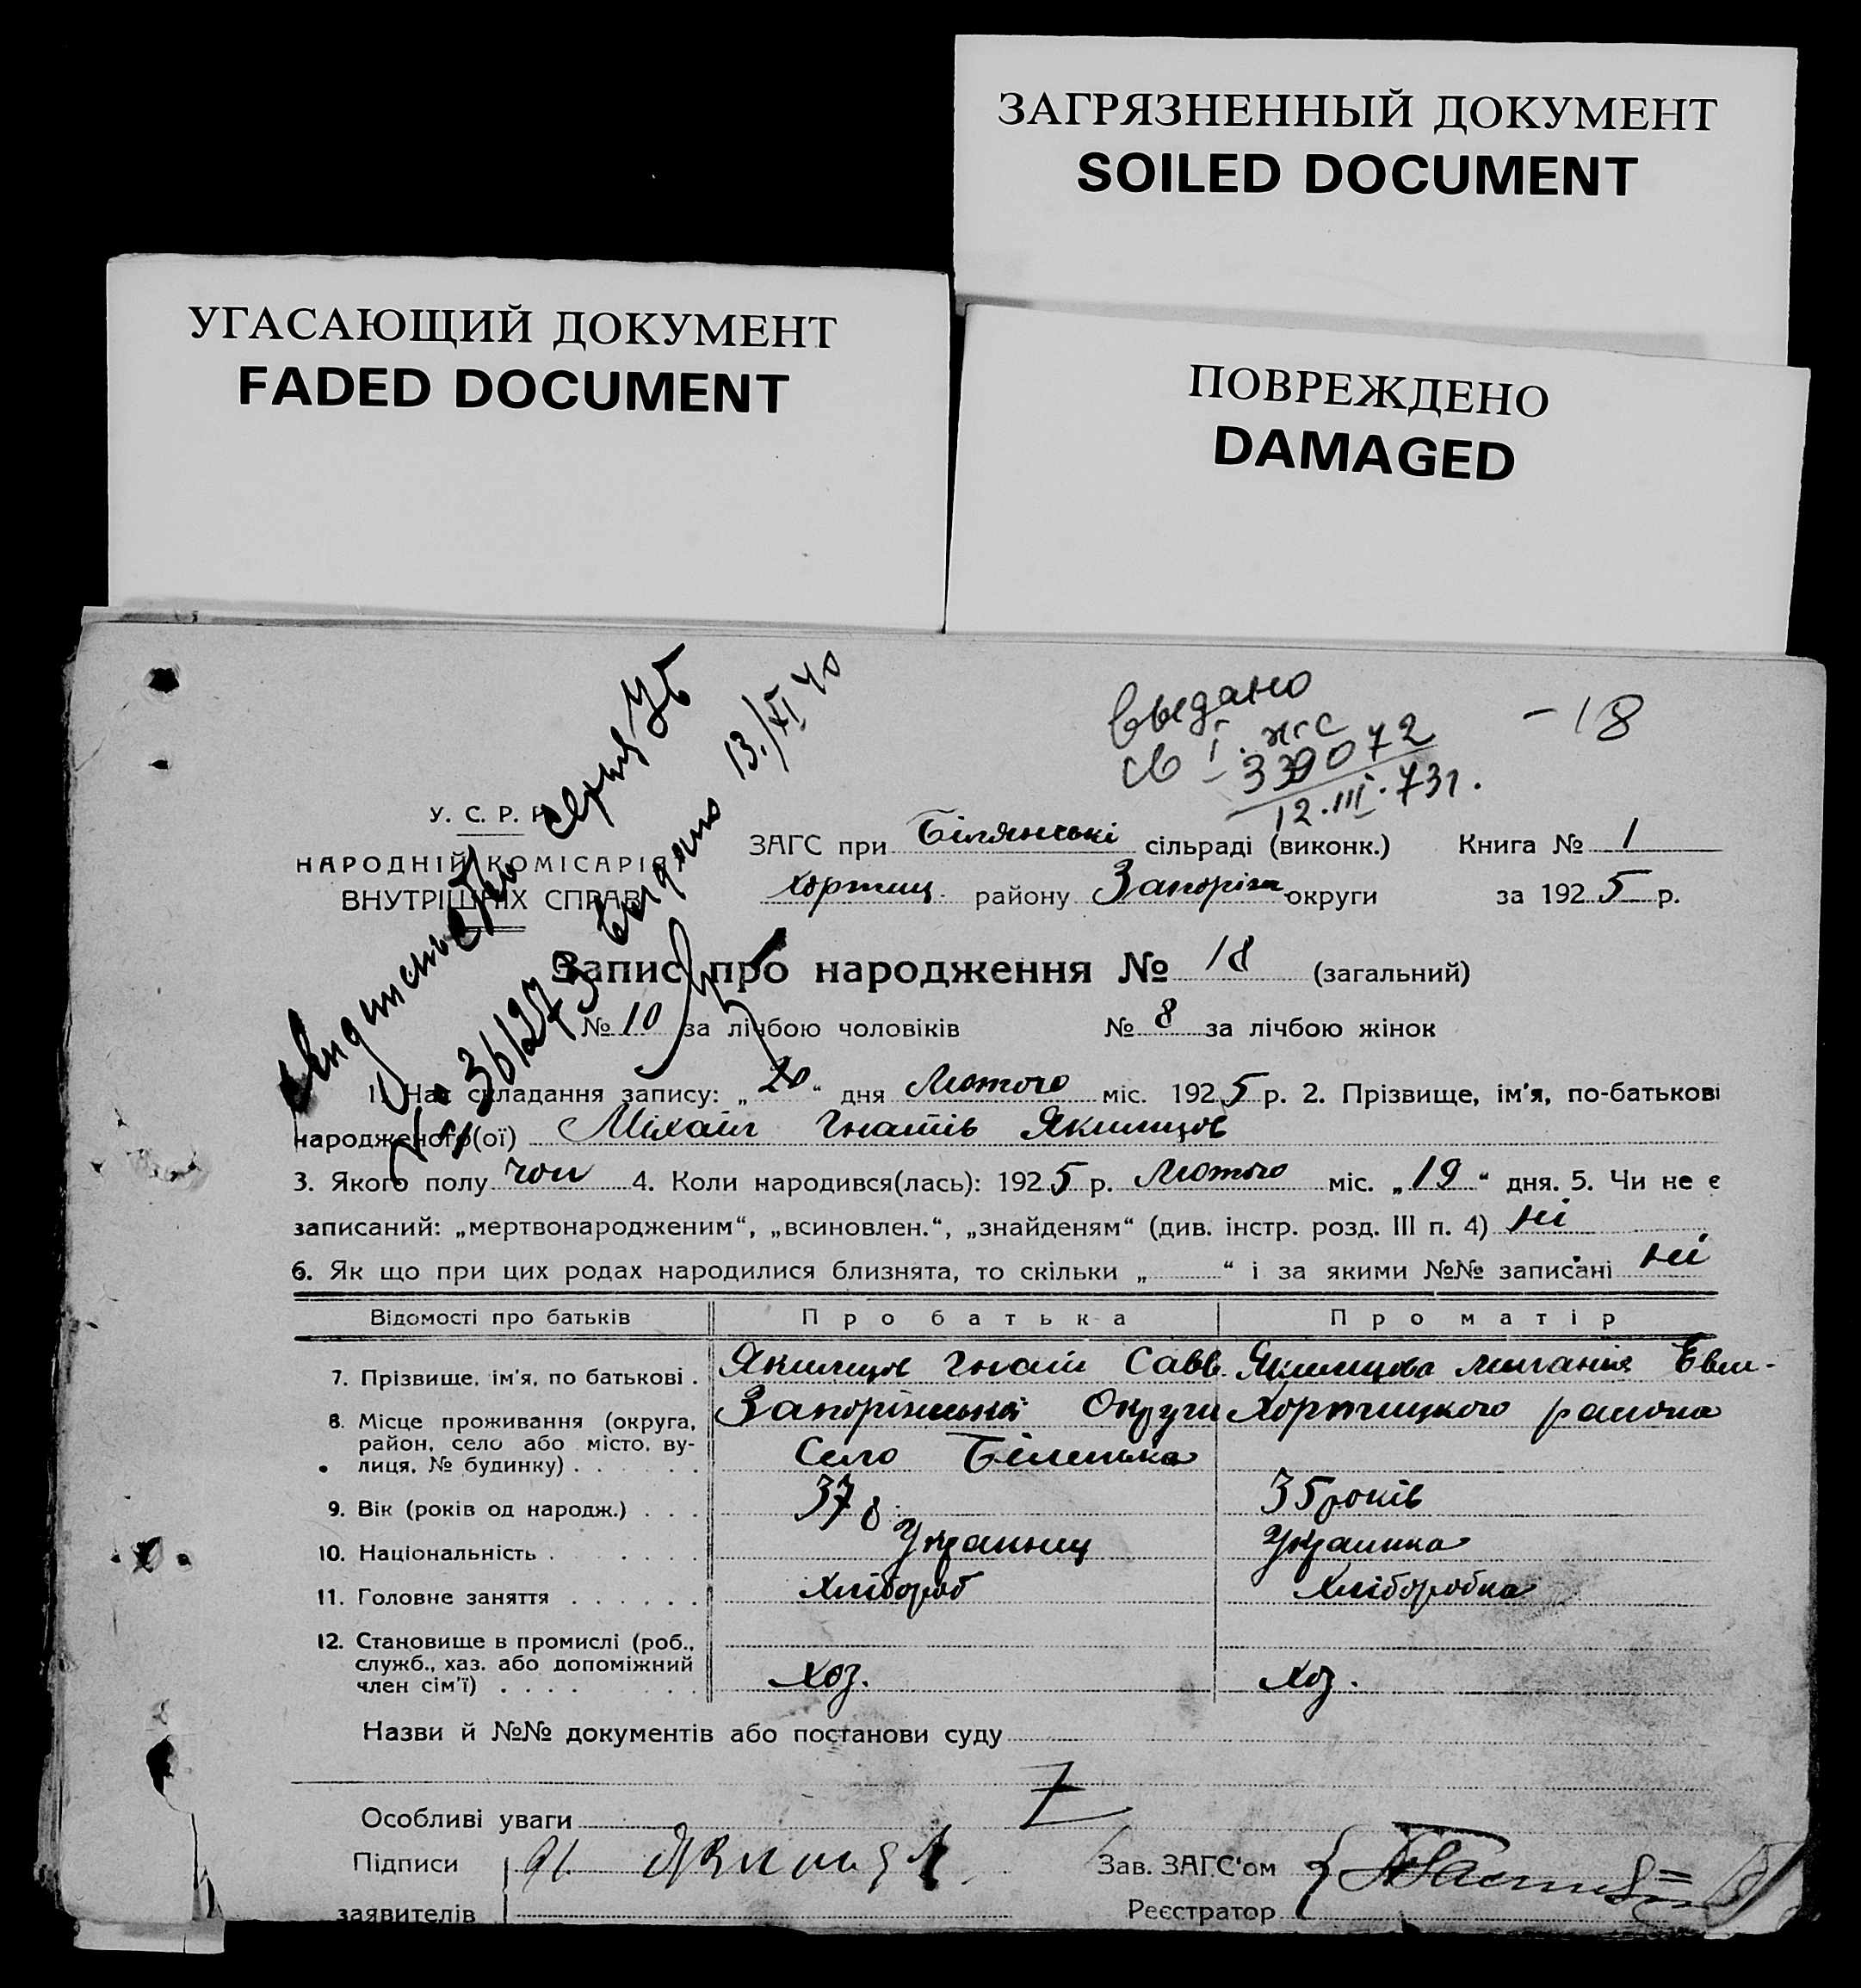 ЗАГРЯЗНЕННЫЙ ДОКУМЕНТ
SOILED DOCUMENT
УГАСАЮЩИЙ ДОКУМЕНТ
FADED DOCUMENT
ПОВРЕЖДЕНО
DAMAGED
выдано
св I. жс
339072
12.III.73г.
-18
серия
№ 36/273 выдано 13/XI 40
У. С. Р. Р.
НАРОДНІЙ КОМІСАРІЯТ
ВНУТРІШНІХ СПРАВ
ЗАГС при Білянські сільраді (виконк.) Книга № 1
Хортиц. району Запоріж округи за 1925 р.
Запис про народження № 18 (загальний)
№ 10 за лічбою чоловіків № 8 за лічбою жінок
1. Час складання запису: „20“ дня Лютого міс. 1925 р. 2. Прізвище, ім'я, по-батькові
народженого(ої) Міхаіл Гнатів
3. Якого полу чол 4. Коли народився(лась): 1925 р. Лютого міс. „19“ дня. 5. Чи не є
записаний: „мертвонародженим“, „всиновлен.“, „знайденям“ (див. інстр. розд. III п. 4) ні
6. Як що при цих родах народилися близнята, то скільки „ “ і за якими №№ записані ні
Відомості про батьків Про батька Про матір
7. Прізвище, ім'я, по батькові . Гнат Савв.
8. Місце проживання (округа, Запоріжської Округи Хортицького района
район, село або місто, ву-
лиця, № будинку) . . . . . . Село Біленька
9. Вік (років од народж.) . . . 37 35 років
10. Національність . . . . . Украинец Украинка
11. Головне заняття . . . . . . Хлібороб Хліборобка
12. Становище в промислі (роб.,
служб., хаз. або допоміжний
член сім'ї) . . . . . . . Хоз. Хоз.
Назви й №№ документів або постанови суду
Особливі уваги
Підписи Зав. ЗАГС'ом
заявителів Реєстратор